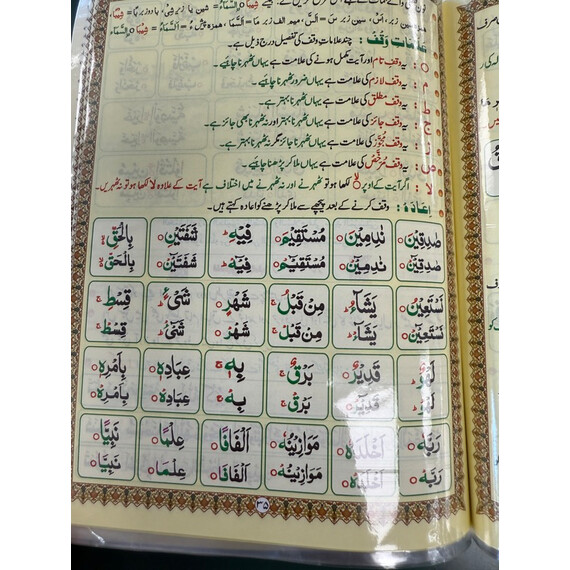 علامات وقف : چند علامات وقف کی تفصیل درج ذیل ہے۔
○ : یہ وقف تام اور آیت کے مکمل ہونے کی علامت ہے یہاں ٹھہرنا چاہئیے۔
م : یہ وقف لازم کی علامت ہے یہاں ضرور ٹھہرنا چاہئیے۔
ط : یہ وقف مطلق کی علامت ہے یہاں ٹھہرنا بہتر ہے۔
ج : یہ وقف جائز کی علامت ہے یہاں ٹھہرنا بہتر اور نہ ٹھہرنا بھی جائز ہے۔
ز : یہ وقف مُجَوَّز کی علامت ہے یہاں ٹھہرنا جائز مگر نہ ٹھہرنا بہتر ہے۔
ص : یہ وقف مُرَخَّص کی علامت ہے یہاں ملا کر پڑھنا چاہئیے۔
لا : اگر آیت کے اوپر لا لکھا ہو تو ٹھہرنے اور نہ ٹھہرنے میں اختلاف ہے آیت کے علاوہ لا لکھا ہو تو نہ ٹھہریں۔
اِعَادَہ : وقف کرنے کے بعد پیچھے سے ملا کر پڑھنے کو اعادہ کہتے ہیں۔
صٰدِقِیْنَ○ نٰدِمِیْنَ○ مُسْتَقِیْمٍ○ فِیْهِ ج شَفَتَیْنِ○ بِالْحَقِّ ج
صٰدِقِیْنْ○ نٰدِمِیْنْ○ مُسْتَقِیْمْ○ فِیْهْ ج شَفَتَیْنْ○ بِالْحَقّْ ج
نَسْتَعِیْنُ○ یَشَآءُ مِنْ قَبْلُ ج شَهْرٍ○ شَیْءٍ قِسْطِ ج
نَسْتَعِیْنْ○ یَشَآءْ مِنْ قَبْلْ ج شَهْرْ○ شَیْءْ قِسْطْ ج
لَهُوَ قَدِیْرٌ○ بَرْقٌ ج بِهٖ ج عِبَادِهٖ○ بِاَمْرِهٖ○
لَهُوْ قَدِیْرْ○ بَرْقْ ج بِهْ ج عِبَادِهْ○ بِاَمْرِهْ○
رَبَّهٗ○ اَخْلَدَهٗ○ مَوَازِیْنُهٗ○ اَلْفَافًا○ عِلْمًا○ نَبِیًّا○
رَبَّهْ○ اَخْلَدَهْ○ مَوَازِیْنُهْ○ اَلْفَافَا○ عِلْمَا○ نَبِیَّا○
۳۵